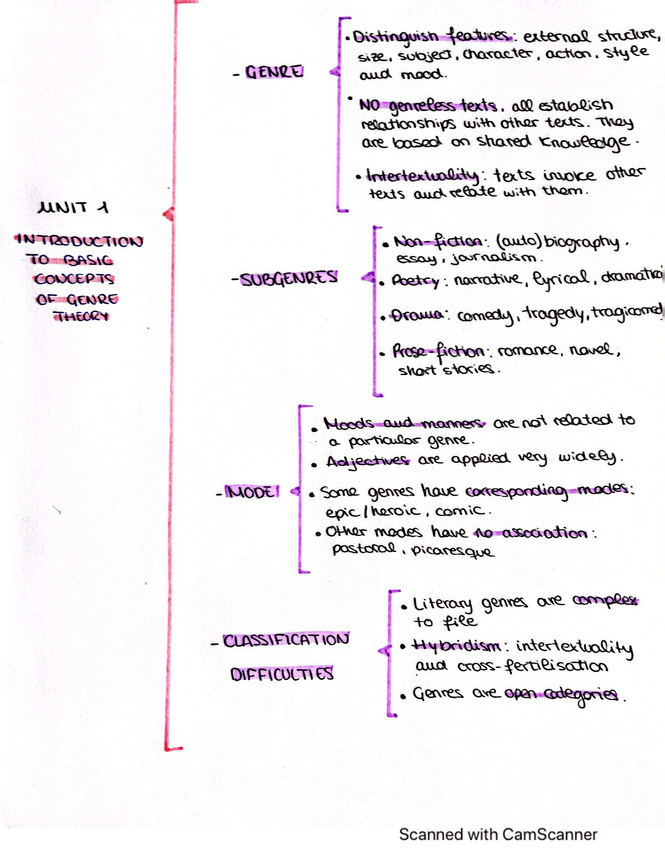 UNIT 1
INTRODUCTION
TO BASIC
CONCEPTS
OF GENRE
THEORY
- GENRE
• Distinguish features: external structure,
size, subject, character, action, style
and mood.
• NO genreless texts, all establish
relationships with other texts. They
are based on shared knowledge.
• Intertextuality: texts invoke other
texts and relate with them.
- SUBGENRES
• Non-fiction: (auto)biography.
essay, journalism.
• Poetry: narrative, lyrical, dramatic
• Drama: comedy, tragedy, tragicomed
• Prose-fiction: romance, novel,
short stories.
- MODE
• Moods and manners are not related to
a particular genre.
• Adjectives are applied very widely.
• Some genres have corresponding modes:
epic/heroic, comic.
• Other modes have no association:
pastoral, picaresque
- CLASSIFICATION
DIFFICULTIES
• Literary genres are complex
to file
• Hybridism: intertextuality
and cross-fertilisation
• Genres are open categories.
Scanned with CamScanner